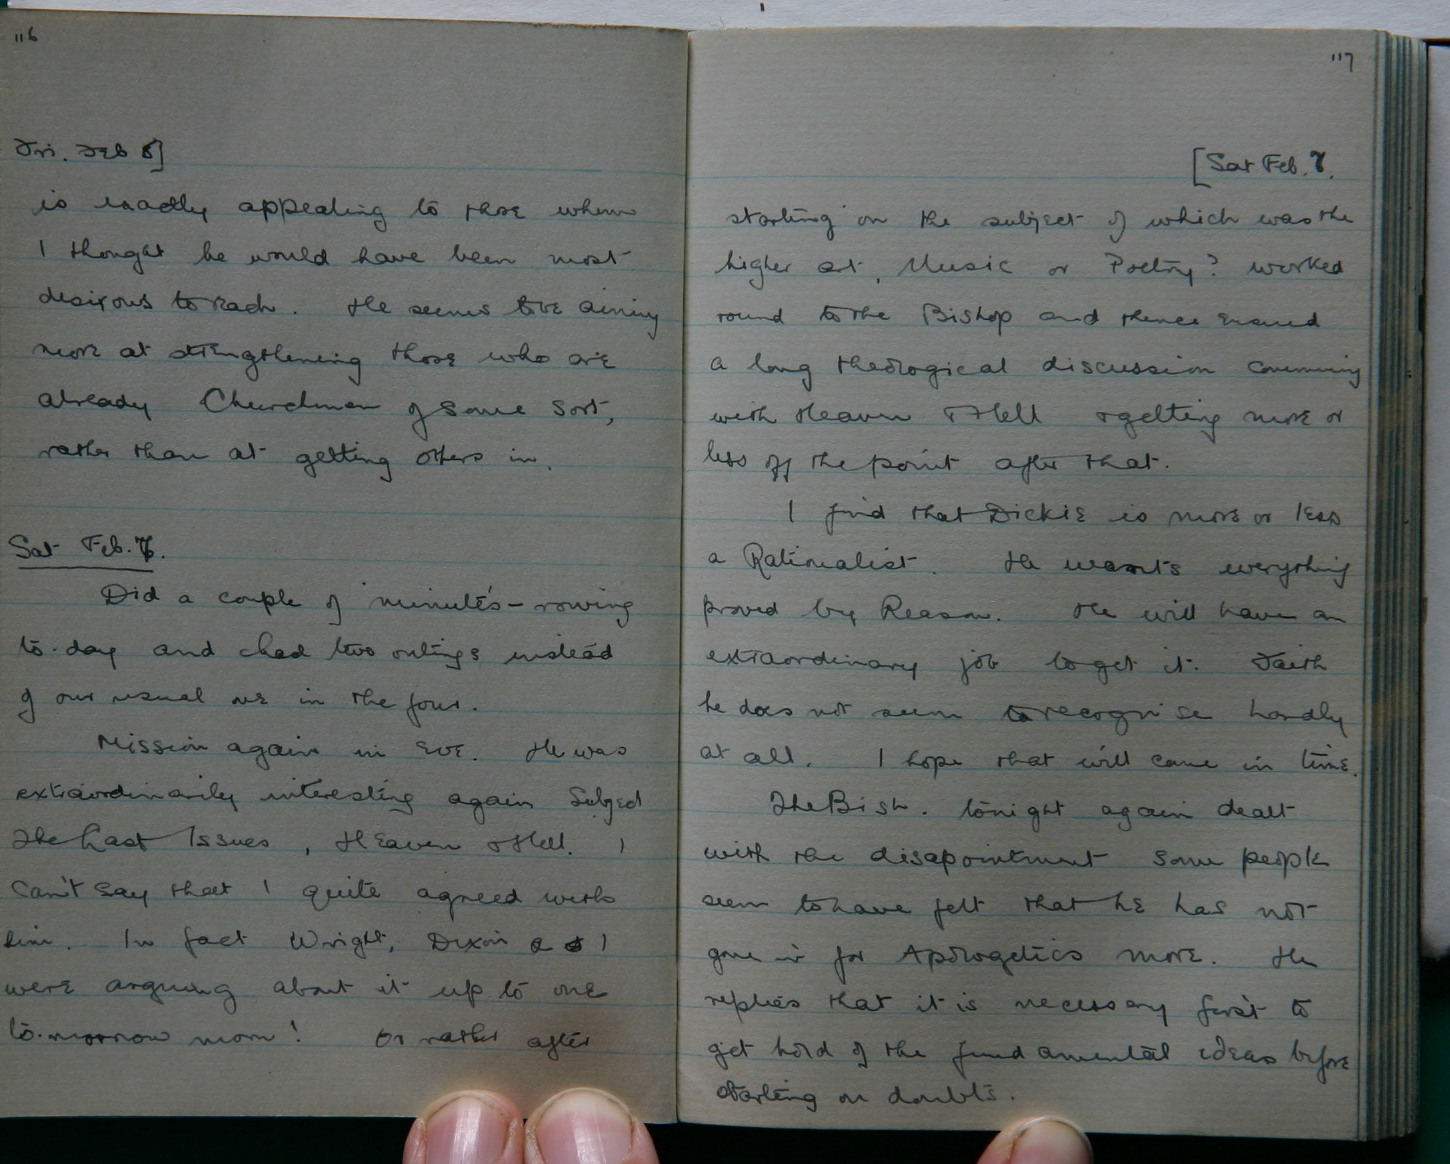 116
Fri. Feb 6]
is exactly appealing to those whom
I thought he would have been most
desirous to reach. He seems to be aiming
more at strengthening those who are
already Churchmen of some sort,
rather than at getting others in.
Sat Feb. 7.
Did a couple of minute's-rowing
to-day and had two outings instead
of our usual one in the four.
Mission again in Eve. He was
extraordinarily interesting again Subject
The Last Issues, Heaven & Hell. I
can't say that I quite agreed with
him. In fact Wright, Dixon & I
were arguing about it up to one
to-morrow morn! Or rather after
117
[Sat Feb. 7.
starting on the subject of which was the
higher art, Music or Poetry? worked
round to the Bishop and thence ensued
a long theological discussion commencing
with Heaven & Hell & getting more or
less off the point after that.
I find that Dickie is more or less
a Rationalist. He wants everything
proved by Reason. He will have an
extraordinary job to get it. Faith
he does not seem to recognise hardly
at all. I hope that will come in time.
The Bish. tonight again dealt
with the disapointment some people
seem to have felt that he has not
gone in for Apologetics more. He
replies that it is necessary first to
get hold of the fundamental ideas before
starting on doubts.